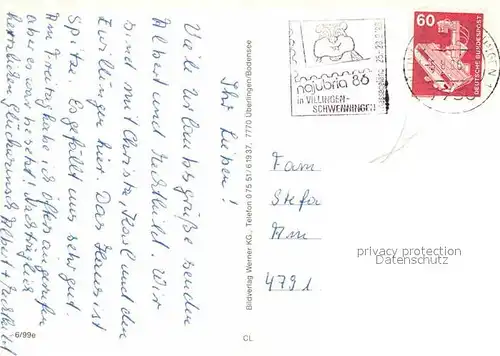 Ihr Lieben!
Viele Urlaubsgrüße senden
Albert und Mechthild. Wir
sind mit Christa, Karl und den
Zwillingen hier. Das Haus ist
Spitze. Es gefällt uns sehr gut.
Am Freitag habe ich öfters angerufen
aber es war besetzt! Nachträglich
herzlichen Glückwunsch Albert + Mechthild
6/99e
Bildverlag Werner KG., Telefon 0 75 51/6 19 37, 7770 Überlingen/Bodensee
CL
najubria 86
in VILLINGEN-
SCHWENNINGEN
60
DEUTSCHE BUNDESPOST
Fam
Stefa
Am
4791
privacy protection
Datenschutz